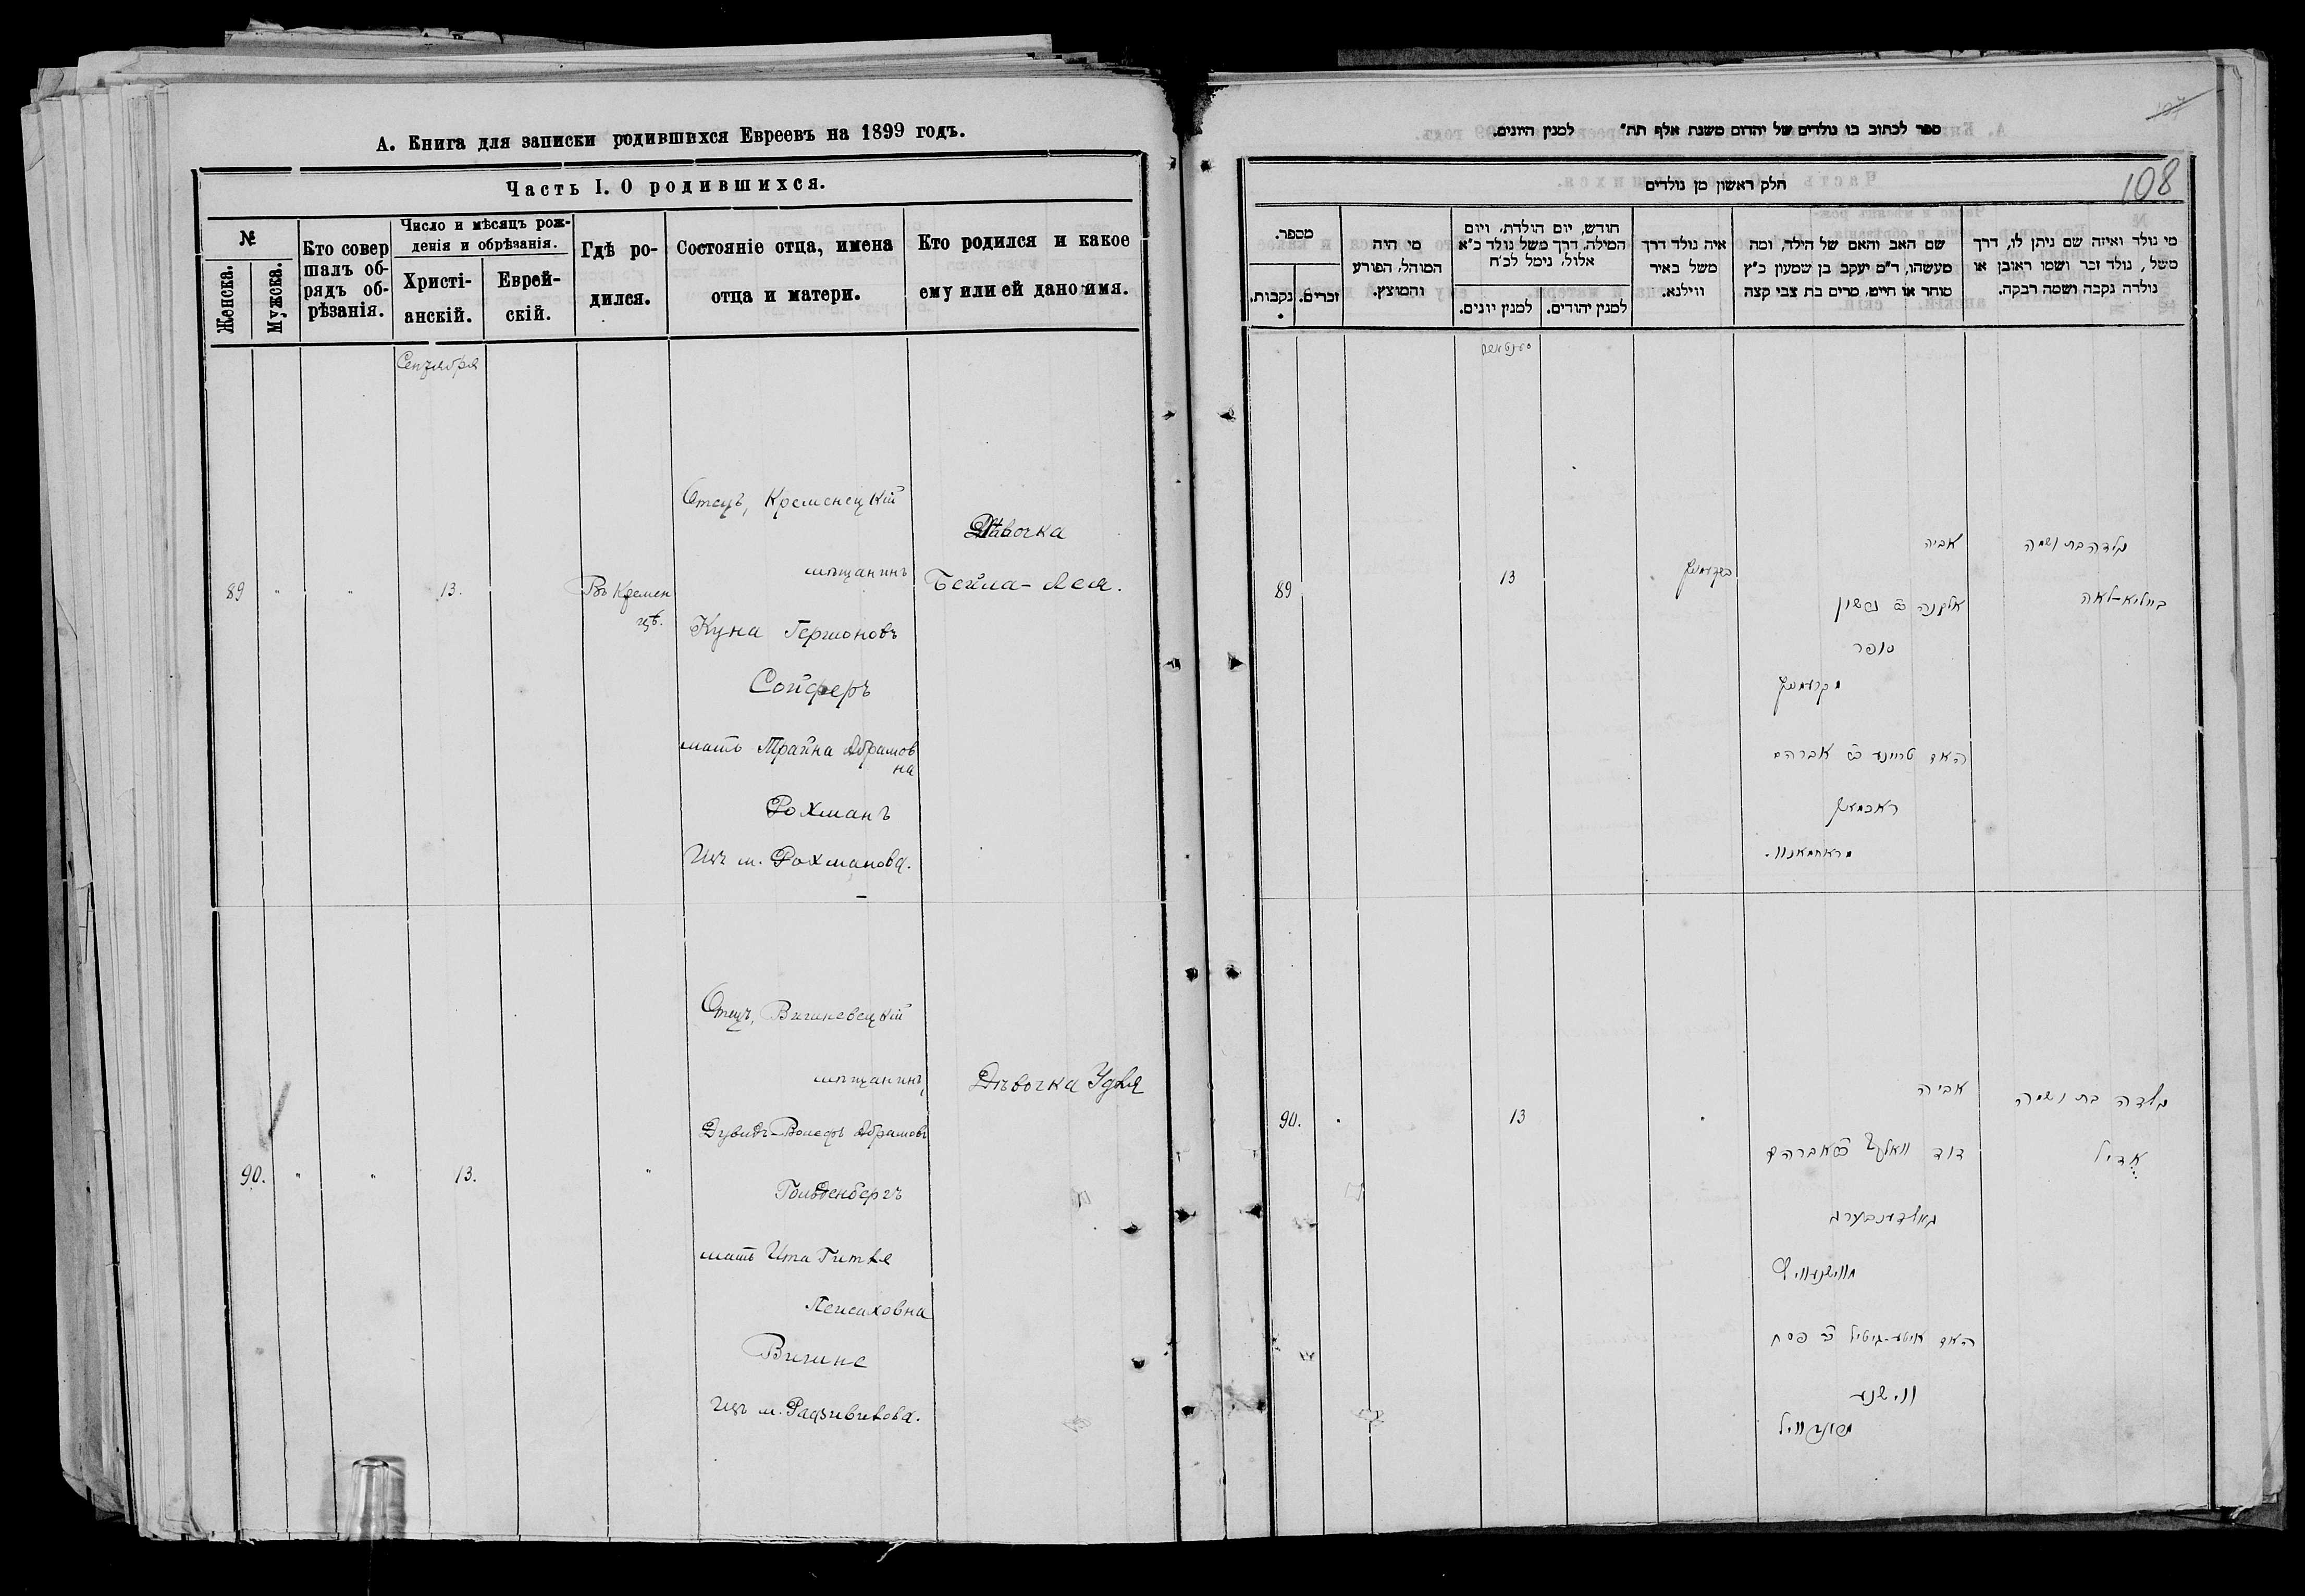 А. Книга для записки родившихся Евреевъ на 1899 годъ.
Часть I. О родившихся.
№
Женска.
Мужска.
Кто совер
шалъ об-
рядъ об-
рѣзанія.
Число и мѣсяцъ рож-
денія и обрѣзанія.
Христі-
анскій.
Еврей-
скій.
Гдѣ ро-
дился.
Состояніе отца, имена
отца и матери.
Кто родился и какое
ему или ей дано имя.
Сентября
89
"
"
13.
Въ Кремен
цѣ.
Отецъ, Кременецкій
мѣщанинъ
Куна Гершоновъ
Сойферъ
мать Трайна Абрамов
на
Рохманъ
Изъ м. Рохманова.
Дѣвочка
Бейла-Лея.
90.
"
"
13.
"
Отецъ, Вишневецкій
мѣщанинъ
Дувидъ-Вольфъ Абрамовъ
Гольденбергъ
мать Ита Гитля
Пейсаховна
Вишне
Изъ м. Радзивилова.
Дѣвочка Удля
107
108
ספר לכתוב בו נולדים של יהדום משנת אלף תת״ למנין היונים.
חלק ראשון מן נולדים
מי נולד ואיזה שם ניתן לו, דרך
משל, נולד זכר ושמו ראובן או
נולדה נקבה ושמה רבקה.
שם האב והאם של הילד, ומה
מעשהו, ד״מ יעקב בן שמעון כ״ץ
סוחר או חייט, מרים בת צבי קצה
איה נולד דרך
משל באיר
ווילנא.
חודש, יום הולדת, ויום
המילה, דרך משל נולד כ״א
אלול, נימל לכ״ח
למנין יהודים.
למנין יונים.
מי היה
המוהל, הפורע
והמוצץ.
מספר.
זכרים.
נקבות.
נולדה בת ושמה
ביילא-לאה
אביה
אלקנה ב״ גרשון
סופר
מקרעמניץ
האם טריינע ב״ אברהם
ראכמאן
מראחמאנוו.
בקרעמניץ
13
89
נולדה בת ושמה
אדיל
אביה
דוד וואלף ב״ אברהם
גאלדענבערג
מווישנעוויץ
האם איטע-גיטיל ב״ פסח
ווישנע
13
90.